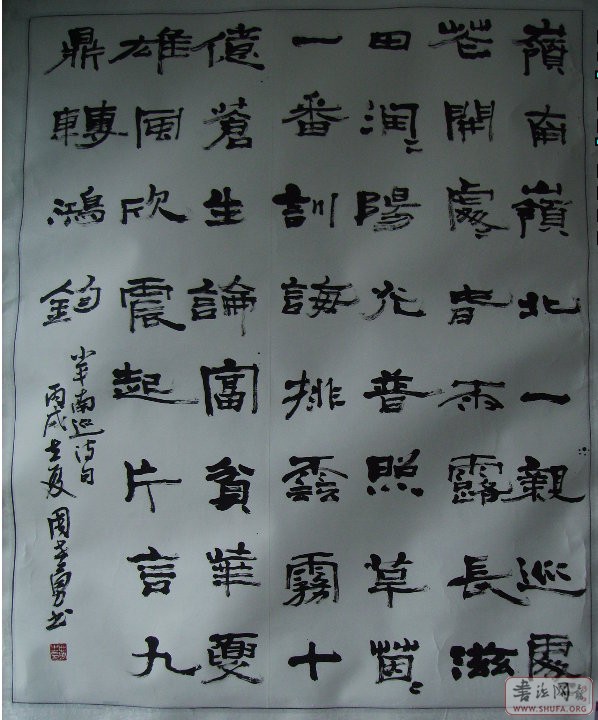 嶺南嶺北一親巡處
花開處〻春雨露長滋
田润〻陽光普照草茵〻
一番訓誨排雲霧十
億蒼生論富貧華夏
雄風欣震起片言九
鼎轉鴻鈞
小平南巡诗句
丙戌立夏 周勇书
WWW.SHUFA.ORG